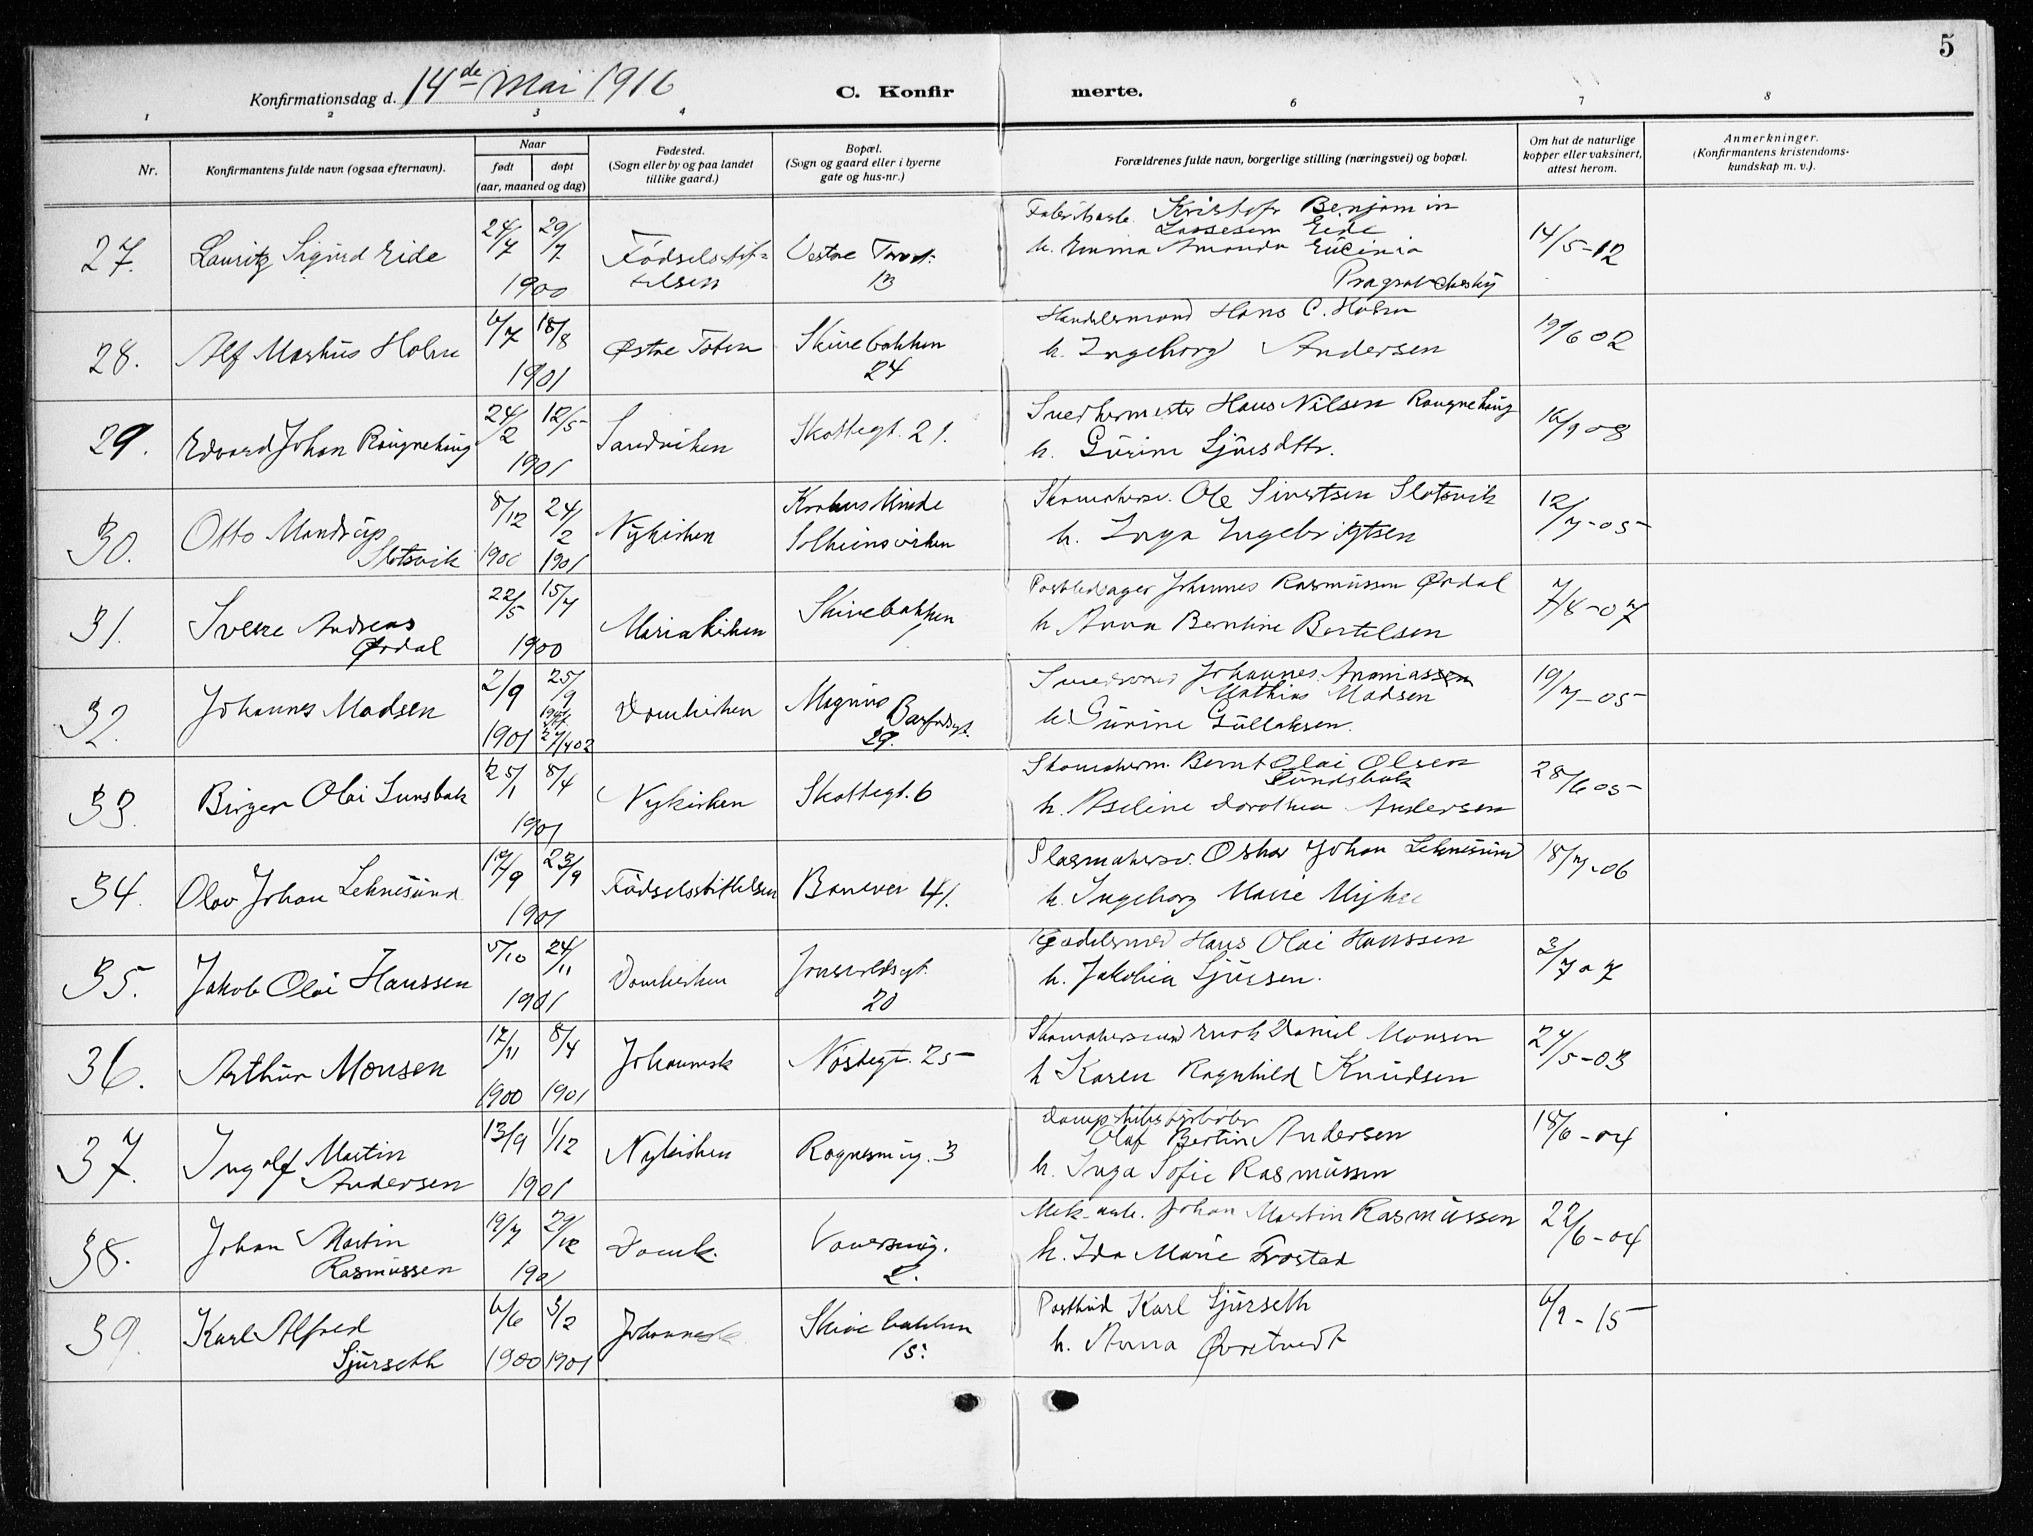 5
Konfirmationsdag d. 14de Mai 1916
C. Konfirmerte.
1 2 3 4 6 7 8
Nr.
Konfirmantens fulde navn (ogsaa efternavn).
Naar
født
døpt
(aar, maaned og dag)
Fødested.
(Sogn eller by og paa landet
tillike gaard.)
Bopæl.
(Sogn og gaard eller i byerne
gate og hus-nr.)
Forældrenes fulde navn, borgerlige stilling (næringsvei) og bopæl.
Om hat de naturlige
kopper eller vaksinert,
attest herom.
Anmerkninger.
(Konfirmantens kristendoms-
kundskap m. v.).
27. Lauritz Sigurd Eide
24/7 29/7
1900
Fødselsstif-
telsen
Vestre Torvt.
13
Kristofr Benjamin
Lassesem Eide
h. Emma Amanda
14/5-12
28. Alf Markus Holm
6/7 18/8
1901
Østre Toten
Skivebakken
24
Handelsmand Hans C. Holm
h. Ingeborg Andersen
19/6 02
29. Edvard Johan Raugnehaug
24/2 12/5
1901
Sandviken
Skottegt. 21.
Snedkermester Hans Nilsen Raugnehaug
h. Gurine Sjursdttr.
16/9 08
30. Otto Mandrup
Slotsvik
8/12 24/2
1900 1901
Nykirken
Krohus Minde
Solheimsviken
Skomakersv. Ole Sivertsen Slotsvik
h. Inga Ingebrigtsen
12/7-05
31. Sverre Andreas
Ørdal
22/5 15/7
1900
Mariakirken
Skivebakken
1
Postledsager Johannes Rasmussen Ørdal
h Anna Berntine Bertelsen
7/8-07
32. Johannes Madsen
2/9 25/9
1901 27/4 02
Domkirken
Magnus Barfodsgt.
29.
Johannes Ananiassen
Mathias Madsen
h. Gurine Gullaksen.
19/7-05
33. Birger Olai Sunsbak
25/1 8/4
1901
Nykirken
Skottegt. 6
Skomakerm. Bernt Olai Olsen
Sundsbak
h. Aseline Dorothea Andersen
28/6 05
34. Olav Johan Leknesund
17/9 23/9
1901
Fødselsstiftelsen
Banevei 41.
Oskar Johan Leknesund
h. Ingeborg Marie
18/7-06
35. Jakob Olai Hanssen
5/10 24/11
1901
Domkirken
Jonsvoldsgt.
20
Hans Olai Hanssen
h. Jakobia Sjursen.
3/7 07
36. Arthur Monsen
17/11 8/4
1900 1901
Johannesk
Nøstegt. 25
Skomakersvend Enok Daniel Monsen
h Karen Ragnhild Knudsen
27/5-03
37. Ingolf Martin
Andersen
13/9 1/12
1901
Nykirken
Rognesmug. 3
Dampskibsfyrbøter
Olaf Bertin Andersen
h. Inga Sofie Rasmussen
18/6-04
38. Johan Martin
Rasmussen
19/7 29/12
1901
Domk.
2.
Mek. arb. Johan Martin Rasmussen
h. Ida Marie Frostad
22/6-04
39. Karl Alfred
Sjurseth
6/6 3/2
1900 1901
Johannesk
Skivebakken
15.
Postbud Karl Sjurseth
h. Anna Øvretvedt
6/9-15